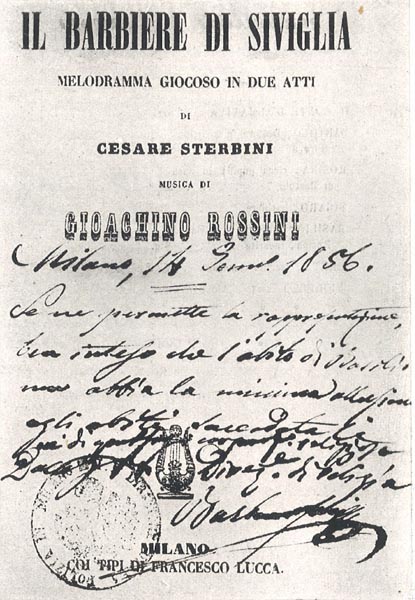 IL BARBIERE DI SIVIGLIA
MELODRAMMA GIOCOSO IN DUE ATTI
DI
CESARE STERBINI
MUSICA DI
GIOACHINO ROSSINI
Milano, 14 Genn. 1856.
Se ne permette la
ben inteso che l'abito di Basilio
non abbia la minima allusione
agli abiti
di Polizia
MILANO
COI TIPI DI FRANCESCO LUCCA.